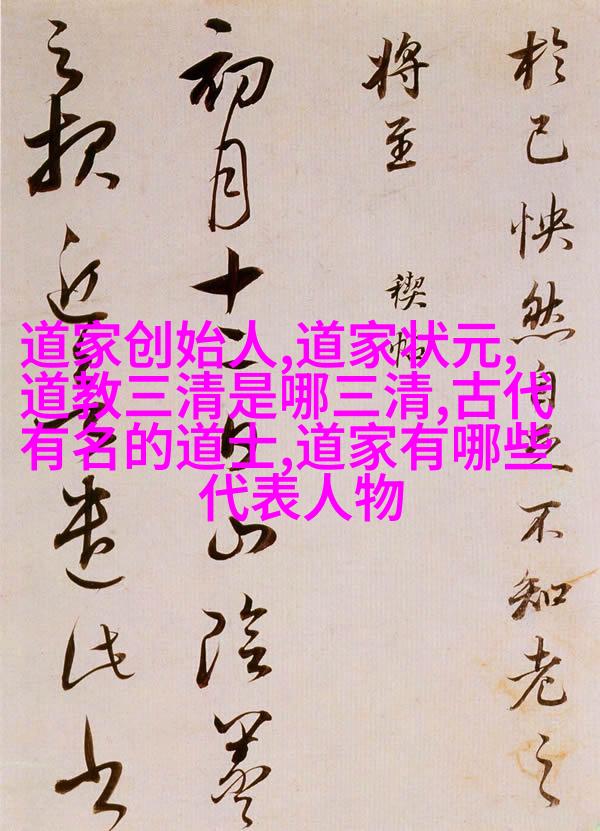 於己怏然自足不知老之
將至 禊帖
初月十二日山陰羲
之報近遣此書
道家创始人,道家状元,
道教三清是哪三清,古代
有名的道士,道家有哪些
代表人物